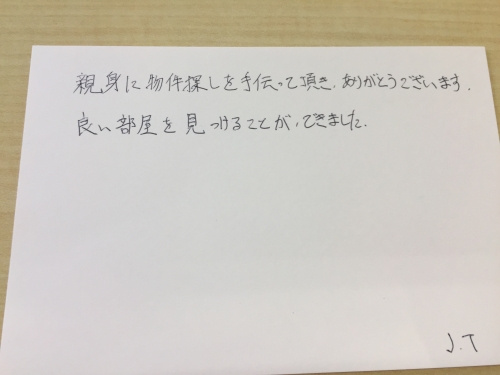 親身に物件探しを手伝って頂き、ありがとうございます.
良い部屋を見つけることが、できました.
J.T